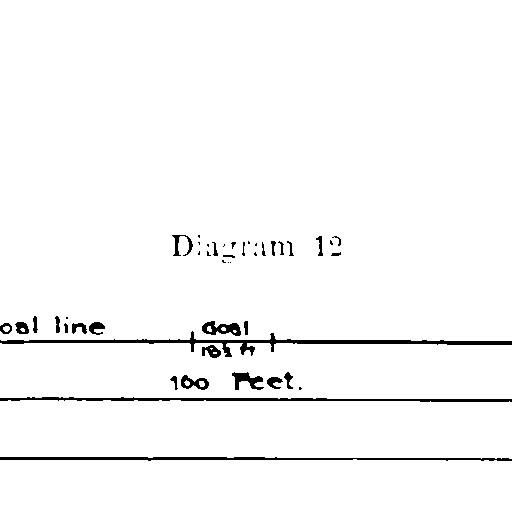 Diagram 12
oal line
Goal
18½ ft
160 Feet.